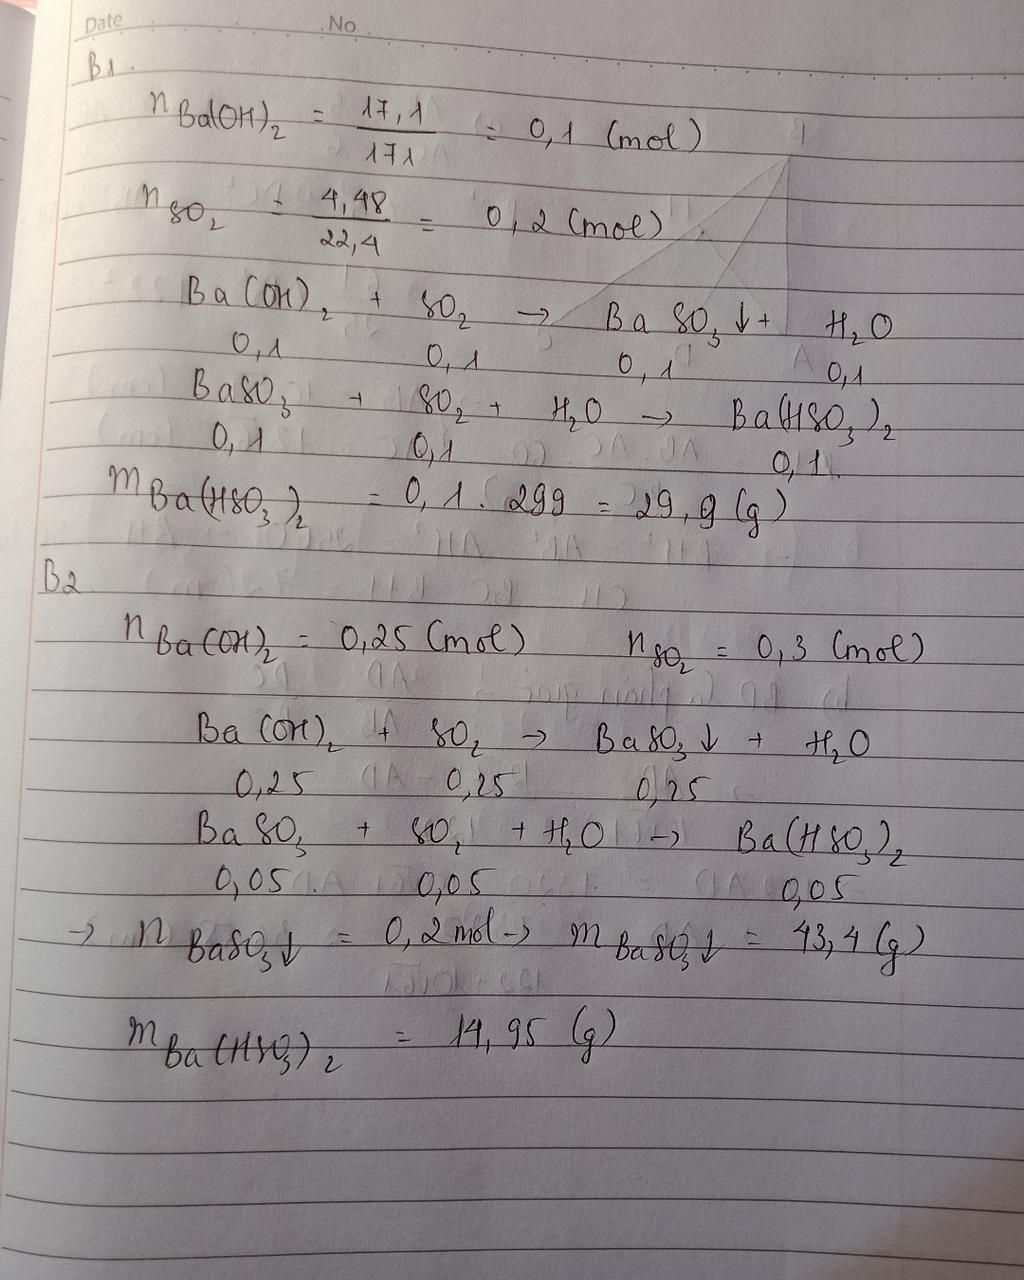 Date No
B1.
n Ba(OH)₂ = 17,1 / 171 = 0,1 (mol)
n SO₂ = 4,48 / 22,4 = 0,2 (mol)
Ba(OH)₂ + SO₂ → BaSO₃↓ + H₂O
0,1 0,1 0,1 0,1
BaSO₃ + SO₂ + H₂O → Ba(HSO₃)₂
0,1 0,1 0,1
m Ba(HSO₃)₂ = 0,1 . 299 = 29,9 (g)
B2
n Ba(OH)₂ = 0,25 (mol) n SO₂ = 0,3 (mol)
Ba(OH)₂ + SO₂ → BaSO₃↓ + H₂O
0,25 0,25 0,25
BaSO₃ + SO₂ + H₂O → Ba(HSO₃)₂
0,05 0,05 0,05
→ n BaSO₃↓ = 0,2 mol → m BaSO₃↓ = 43,4 (g)
m Ba(HSO₃)₂ = 14,95 (g)